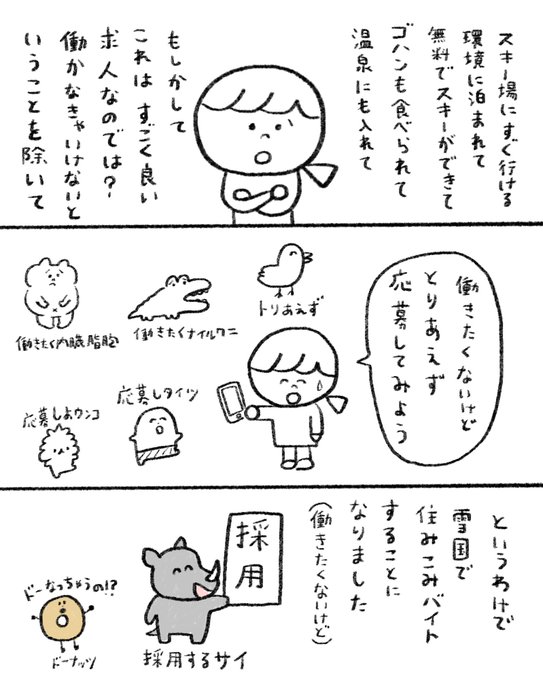 スキー場にすぐ行ける
環境に泊まれて
無料でスキーができて
ゴハンも食べられて
温泉にも入れて
もしかして
これは すごく良い
求人なのでは？
働かなきゃいけないと
いうことを除いて
働きたくないけど
とりあえず
応募してみよう
トリあえず
働きたくナイルワニ
働きたく内臓脂肪
応募しタイツ
応募しようンコ
というわけで
雪国で
住みこみバイト
することに
なりました
(働きたくないけど)
採用
採用するサイ
ドーなっちゃうの!?
ドーナッツ